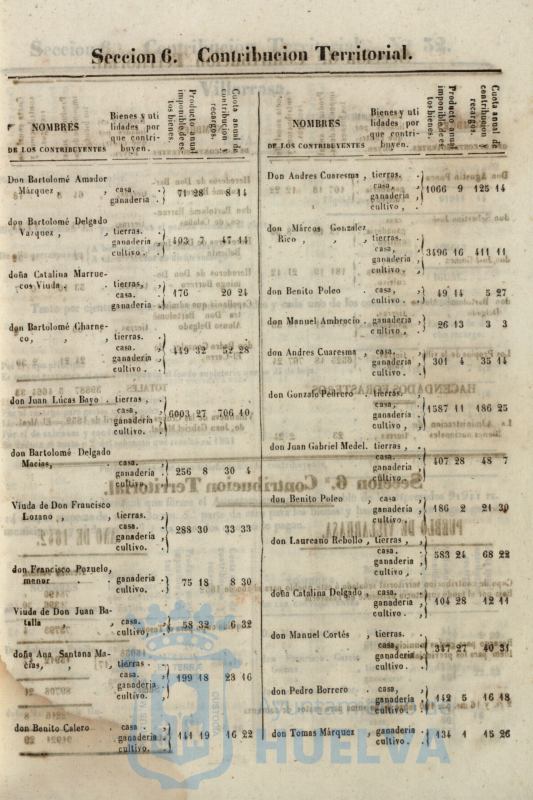 Seccion 6. Contribucion Territorial.
NOMBRES
DE LOS CONTRIBUYENTES
Bienes y uti
lidades por
que contri-
buyen.
Producto anual
imponible de es-
tos bienes.
Cuota anual de
contribucion y
recargos.
Don Bartolomé Amador
Márquez , , casa.
ganaderia . } 71 28 8 14
don Bartolomé Delgado
Vazquez , , tierras.
ganaderia
cultivo. . } 403 7 47 14
doña Catalina Marrue-
cos Viuda . tierras,
casa.
ganaderia . } 176 20 24
don Bartolomé Gharne-
co, , , tierras.
casa.
ganaderia
cultivo . } 449 32 52 28
don Juan Lúcas Bayo . tierras ,
casa,
ganaderia
cultivo. } 6003 27 706 10
don Bartolomé Delgado
Macias, . casa.
ganaderia
cultivo. } 256 8 30 4
Viuda de Don Francisco
Lozano , , tierras.
casa.
ganaderia
cultivo. } 288 30 33 33
don Francisco Pozuelo,
menor . . ganaderia .
cultivo. } 75 18 8 30
Viuda de Don Juan Ba-
talla , . casa.
cultivo, } 58 32 6 32
doña Ana Santana Ma-
cías, , , tierras .
casa.
ganaderia .
cultivo } 199 18 23 16
don Benito Calero . casa .
ganaderia .
cultivo. } 141 19 16 22
NOMBRES
DE LOS CONTRIBUYENTES
Bienes y uti
lidades por
que contri-
buyen.
Producto anual
imponible de es-
tos bienes.
Cuota anual de
contribucion y
recargos.
Don Andres Cuaresma , tierras. .
casa,
ganaderia .
cultivo , } 1066 9 125 14
don Márcos Gonzalez
Rico , , , tierras.
casa,
ganaderia
cultivo } 3496 16 411 11
don Benito Poleo . casa,
cultivo . } 49 14 5 27
don Manuel Ambrocio . ganaderia
cultivo . } 26 13 3 3
don Andres Cuaresma , casa,
ganaderia
cultivo . } 301 4 35 14
don Gonzalo Pedrero . tierras
casa,
ganaderia
cultivo , } 1587 11 186 25
don Juan Gabriel Medel. tierras ,
casa,
ganaderia
cultivo } 407 28 48 7
don Benito Poleo , casa
ganaderia
cultivo } 186 2 21 30
don Laureano Rebollo , tierras ,
casa.
ganaderia
cultivo , } 583 24 68 22
doña Catalina Delgado , casa,
ganaderia
cultivo . } 104 28 12 11
don Manuel Cortés , tierras. .
casa,
ganaderia
cultivo . } 347 27 40 31
don Pedro Borrero . casa,
ganaderia
cultivo . } 142 5 16 18
don Tomas Márquez , ganaderia .
cultivo . } 134 1 15 26
HUELVA